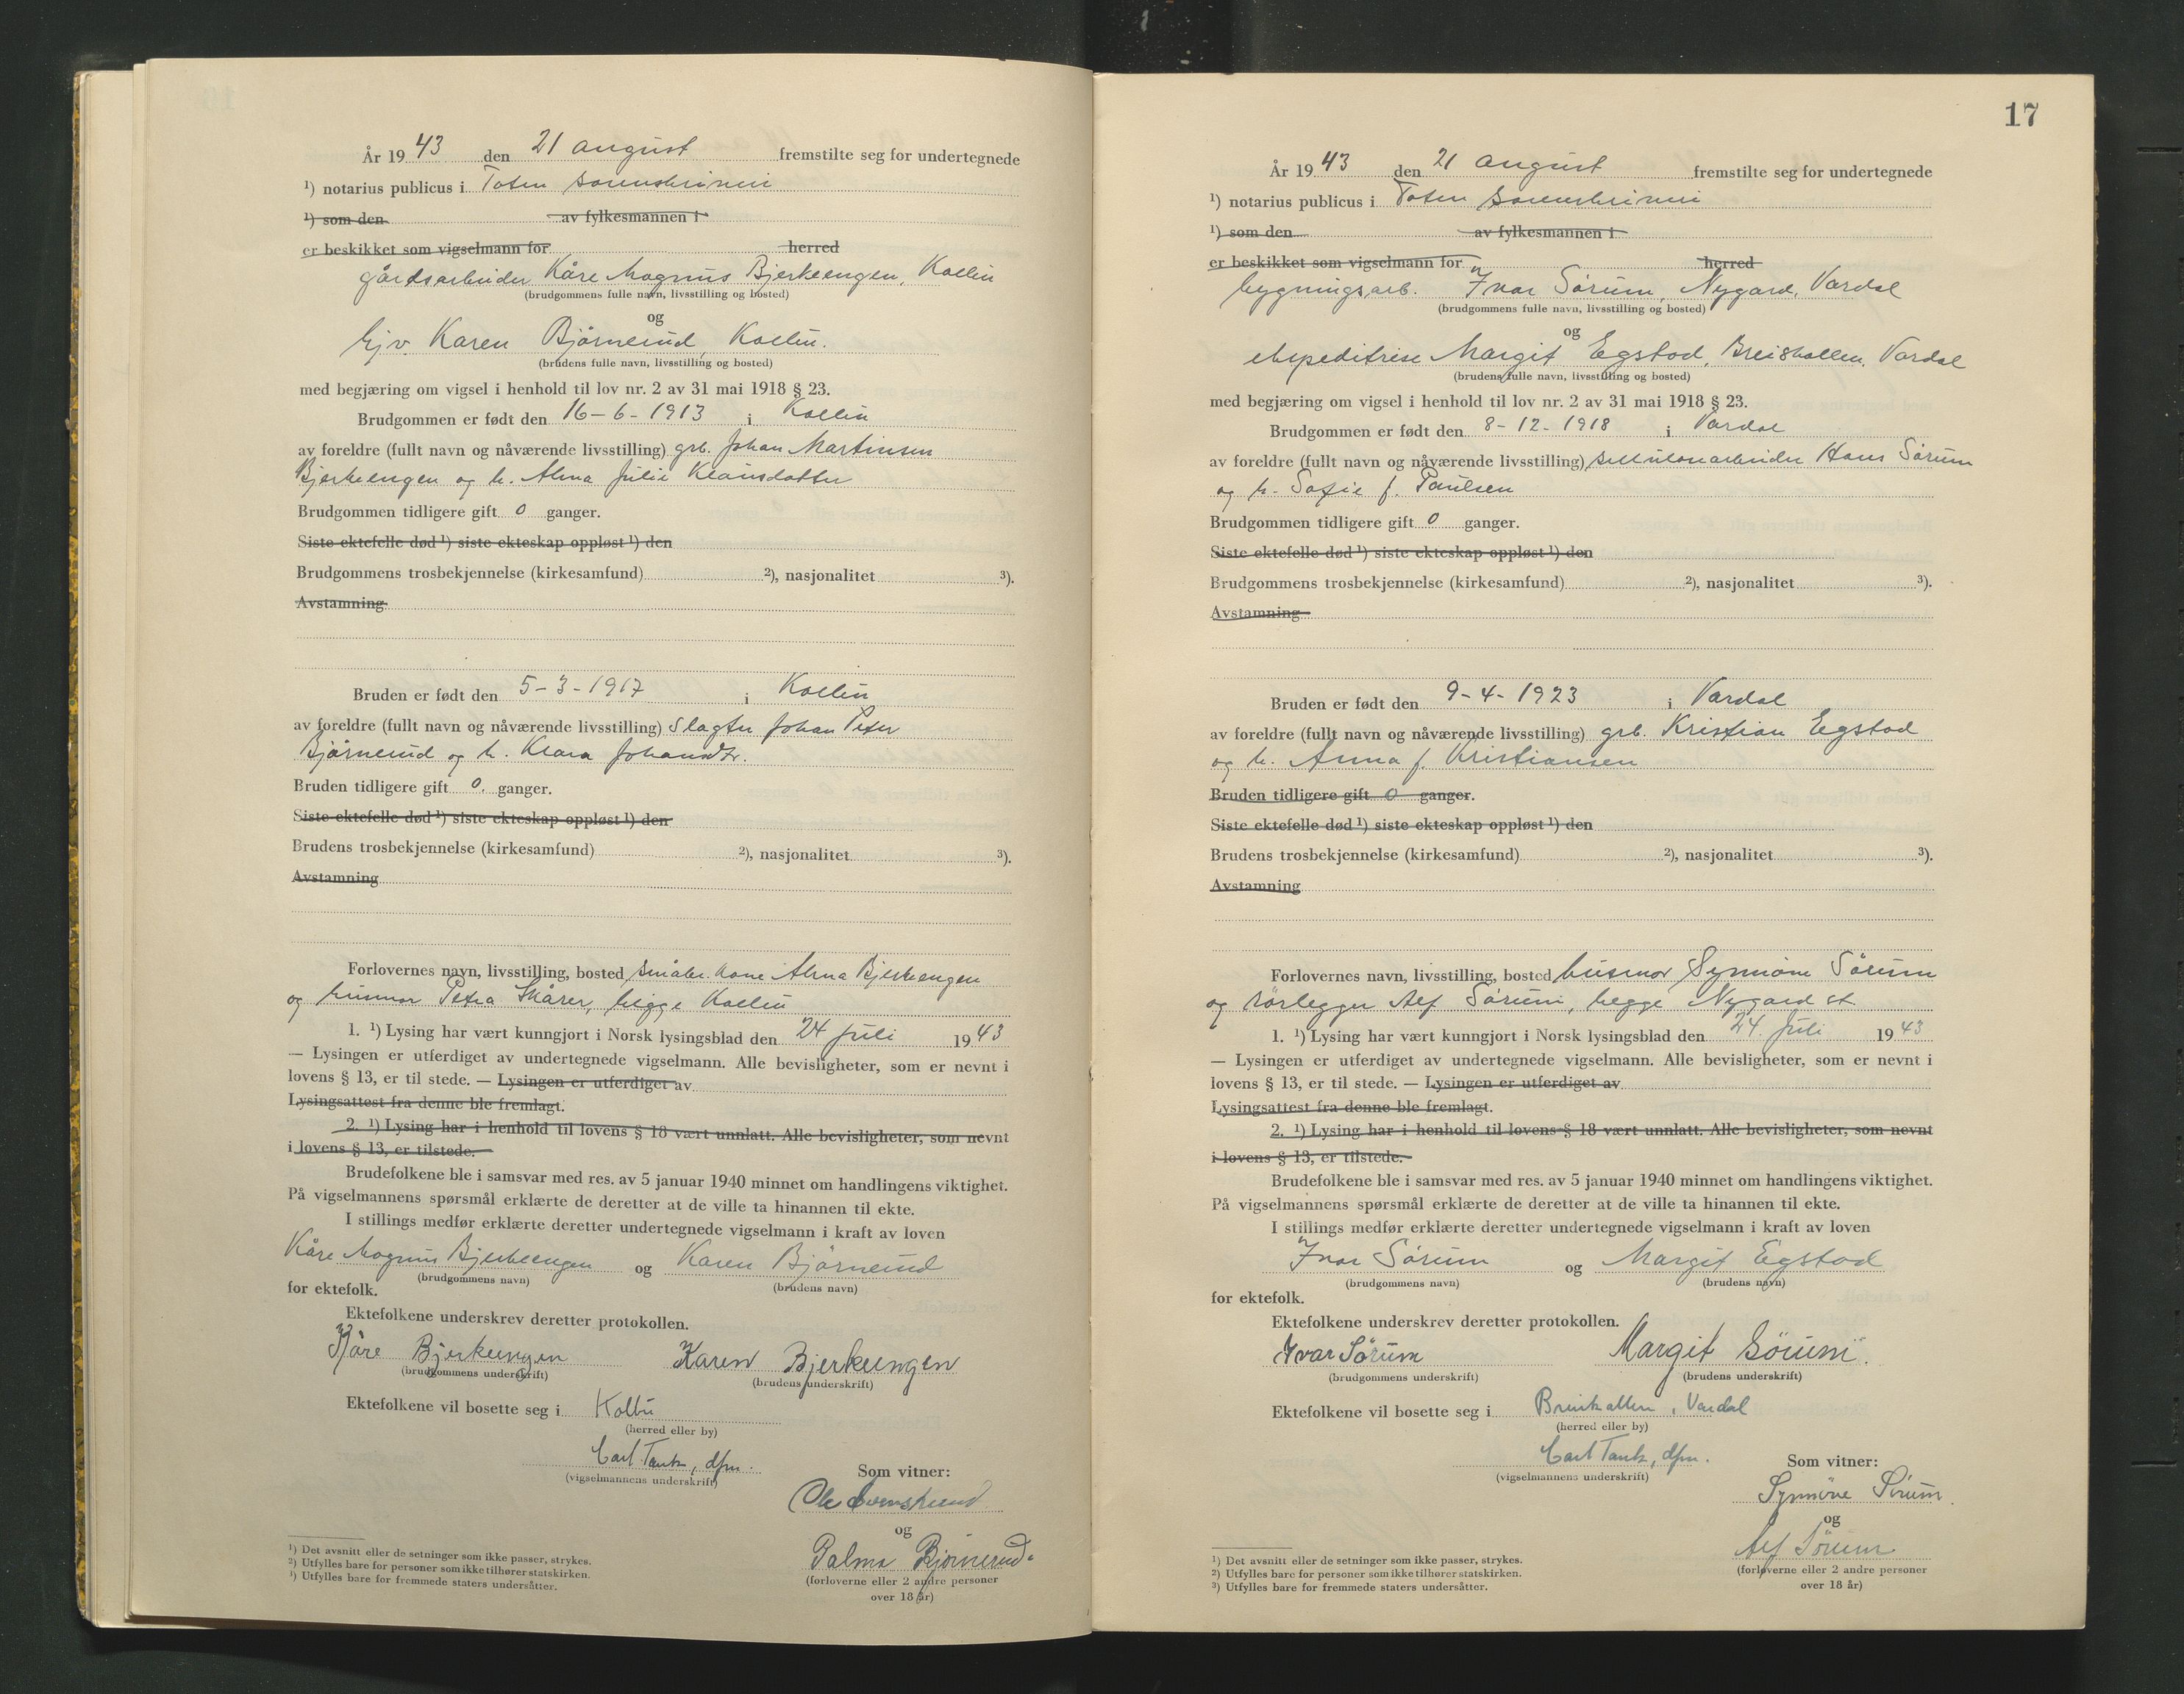 År 1943 den 21 august fremstilte seg for undertegnede
¹) notarius publicus i Toten sorenskriveri
¹) som den av fylkesmannen i
er beskikket som vigselmann for herred
gårdsarbeider Kåre Magnus Bjerkeengen, Kolbu
(brudgommens fulle navn, livsstilling og bosted)
og
hjv. Karen Bjørnerud, Kolbu.
(brudens fulle navn, livsstilling og bosted)
med begjæring om vigsel i henhold til lov nr. 2 av 31 mai 1918 § 23.
Brudgommen er født den 16-6-1913 i Kolbu
av foreldre (fullt navn og nåværende livsstilling) grb. Johan Martinsen
Bjerkeengen og h. Alma Julie Klausdatter
Brudgommen tidligere gift 0 ganger.
Siste ektefelle død ¹) siste ekteskap oppløst ¹) den
Brudgommens trosbekjennelse (kirkesamfund) ²), nasjonalitet ³).
Avstamning
Bruden er født den 5-3-1917 i Kolbu
av foreldre (fullt navn og nåværende livsstilling) Slagter Johan Peter
Bjørnerud og h. Klara Johansdtr.
Bruden tidligere gift 0. ganger.
Siste ektefelle død ¹) siste ekteskap oppløst ¹) den
Brudens trosbekjennelse (kirkesamfund) ²), nasjonalitet ³).
Avstamning
Forlovernes navn, livsstilling, bosted småbr. kone Alma Bjerkeengen
og husmor Petra Skårer, begge Kolbu
1. ¹) Lysing har vært kunngjort i Norsk lysingsblad den 24 juli 1943
— Lysingen er utferdiget av undertegnede vigselmann. Alle bevisligheter, som er nevnt i
lovens § 13, er til stede. — Lysingen er utferdiget av
Lysingsattest fra denne ble fremlagt.
2. ¹) Lysing har i henhold til lovens § 18 vært unnlatt. Alle bevisligheter, som nevnt
i lovens § 13, er tilstede.
Brudefolkene ble i samsvar med res. av 5 januar 1940 minnet om handlingens viktighet.
På vigselmannens spørsmål erklærte de deretter at de ville ta hinannen til ekte.
I stillings medfør erklærte deretter undertegnede vigselmann i kraft av loven
Kåre Magnus Bjerkeengen og Karen Bjørnerud
(brudgommens navn) (brudens navn)
for ektefolk.
Ektefolkene underskrev deretter protokollen.
Kåre Bjerkeengen Karen Bjerkeengen
(brudgommens underskrift) (brudens underskrift)
Ektefolkene vil bosette seg i Kolbu
(herred eller by)
Carl Tank, dfm.
(vigselmannens underskrift)
Som vitner:
Ole
og
Palma Bjørnerud.
(forloverne eller 2 andre personer
over 18 år)
¹) Det avsnitt eller de setninger som ikke passer, strykes.
²) Utfylles bare for personer som ikke tilhører statskirken.
³) Utfylles bare for fremmede staters undersåtter.
17
År 1943 den 21 august fremstilte seg for undertegnede
¹) notarius publicus i Toten sorenskriveri
¹) som den av fylkesmannen i
er beskikket som vigselmann for herred
bygningsarb. Ivar Sørum, Nygard, Vardal
(brudgommens fulle navn, livsstilling og bosted)
og
ekspeditrise Margit Egstad, Breiskallen, Vardal
(brudens fulle navn, livsstilling og bosted)
med begjæring om vigsel i henhold til lov nr. 2 av 31 mai 1918 § 23.
Brudgommen er født den 8-12-1918 i Vardal
av foreldre (fullt navn og nåværende livsstilling) sellulosearbeider Hans Sørum
og h. Sofie f. Paulsen
Brudgommen tidligere gift 0 ganger.
Siste ektefelle død ¹) siste ekteskap oppløst ¹) den
Brudgommens trosbekjennelse (kirkesamfund) ²), nasjonalitet ³).
Avstamning
Bruden er født den 9-4-1923 i Vardal
av foreldre (fullt navn og nåværende livsstilling) grb. Kristian Egstad
og h. Anna f. Kristiansen
Bruden tidligere gift 0 ganger.
Siste ektefelle død ¹) siste ekteskap oppløst ¹) den
Brudens trosbekjennelse (kirkesamfund) ²), nasjonalitet ³).
Avstamning
Forlovernes navn, livsstilling, bosted husmor Synnøve Sørum
og rørlegger Alf Sørum, begge Nygard st.
1. ¹) Lysing har vært kunngjort i Norsk lysingsblad den 24. juli 1943
— Lysingen er utferdiget av undertegnede vigselmann. Alle bevisligheter, som er nevnt i
lovens § 13, er til stede. — Lysingen er utferdiget av
Lysingsattest fra denne ble fremlagt.
2. ¹) Lysing har i henhold til lovens § 18 vært unnlatt. Alle bevisligheter, som nevnt
i lovens § 13, er tilstede.
Brudefolkene ble i samsvar med res. av 5 januar 1940 minnet om handlingens viktighet.
På vigselmannens spørsmål erklærte de deretter at de ville ta hinannen til ekte.
I stillings medfør erklærte deretter undertegnede vigselmann i kraft av loven
Ivar Sørum og Margit Egstad
(brudgommens navn) (brudens navn)
for ektefolk.
Ektefolkene underskrev deretter protokollen.
Ivar Sørum Margit Sørum.
(brudgommens underskrift) (brudens underskrift)
Ektefolkene vil bosette seg i Breiskallen, Vardal
(herred eller by)
Carl Tank, dfm.
(vigselmannens underskrift)
Som vitner:
Synnøve Sørum.
og
Alf Sørum
(forloverne eller 2 andre personer
over 18 år)
¹) Det avsnitt eller de setninger som ikke passer, strykes.
²) Utfylles bare for personer som ikke tilhører statskirken.
³) Utfylles bare for fremmede staters undersåtter.